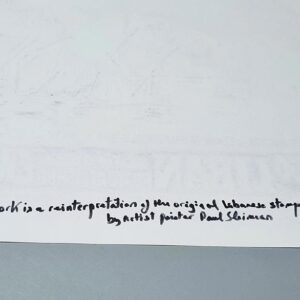 ork is a reinterpretation of the original Lebanese stamp
by Artist painter Paul Sleiman